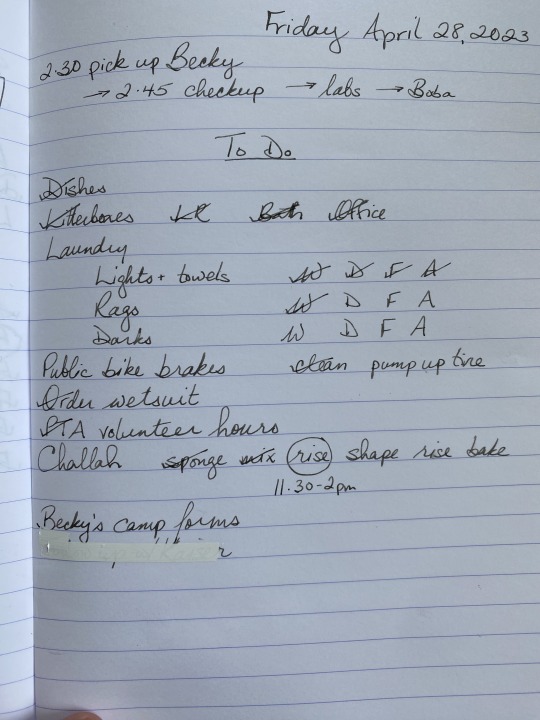 Friday April 28, 2023
2.30 pick up Becky
→ 2.45 checkup → labs → Boba
To Do
Dishes
Litterboxes LR Bath Office
Laundry
Lights + towels W D F A
Rags W D F A
Darks W D F A
Public bike brakes clean pump up tire
Order wetsuit
PTA volunteer hours
Challah sponge mix rise shape rise bake
11.30-2pm
Becky's camp forms